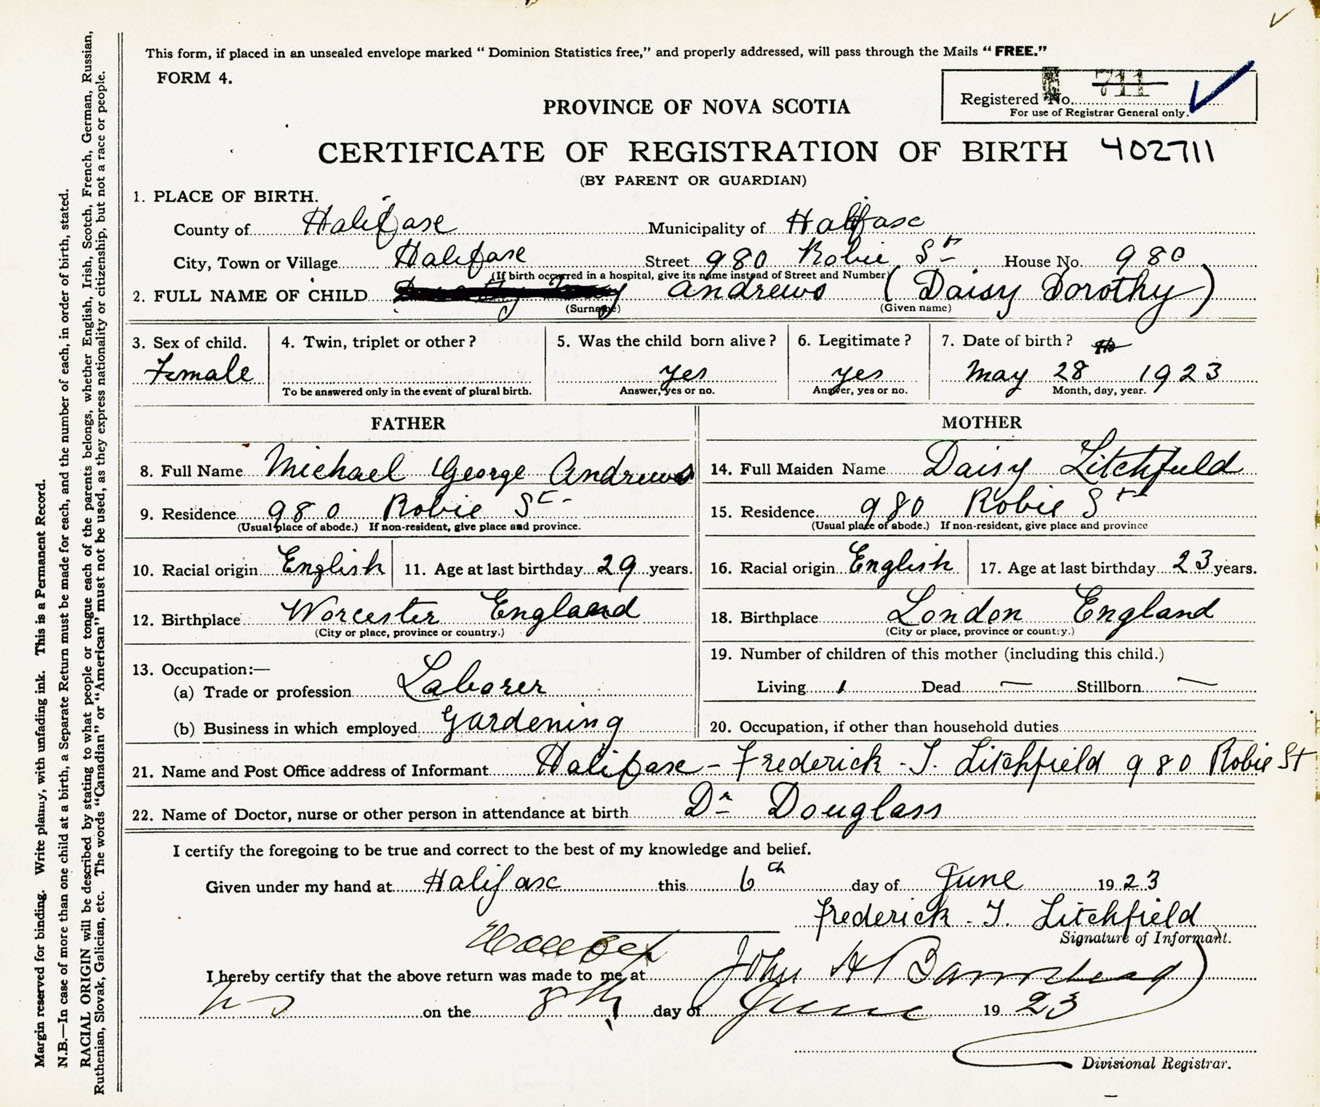 This form, if placed in an unsealed envelope marked " Dominion Statistics free," and properly addressed, will pass through the Mails " FREE."
FORM 4.
Registered No. 711
For use of Registrar General only.
PROVINCE OF NOVA SCOTIA
CERTIFICATE OF REGISTRATION OF BIRTH 402711
(BY PARENT OR GUARDIAN)
1. PLACE OF BIRTH.
County of Halifax Municipality of Halifax
City, Town or Village Halifax Street 980 Robie St House No. 980
(If birth occurred in a hospital, give its name instead of Street and Number)
2. FULL NAME OF CHILD Andrews (Daisy Dorothy)
(Surname) (Given name)
3. Sex of child. 4. Twin, triplet or other? 5. Was the child born alive? 6. Legitimate? 7. Date of birth?
Female yes yes May 28 1923
To be answered only in the event of plural birth. Answer, yes or no. Answer, yes or no. Month, day, year.
FATHER MOTHER
8. Full Name Michael George Andrews 14. Full Maiden Name Daisy Litchfield
9. Residence 980 Robie St 15. Residence 980 Robie St
(Usual place of abode.) If non-resident, give place and province. (Usual place of abode.) If non-resident, give place and province
10. Racial origin English 11. Age at last birthday 29 years. 16. Racial origin English 17. Age at last birthday 23 years.
12. Birthplace Worcester England 18. Birthplace London England
(City or place, province or country.) (City or place, province or country.)
13. Occupation:— 19. Number of children of this mother (including this child.)
(a) Trade or profession Laborer Living 1 Dead — Stillborn —
(b) Business in which employed Gardening 20. Occupation, if other than household duties
21. Name and Post Office address of Informant Halifax - Frederick - T. Litchfield 980 Robie St
22. Name of Doctor, nurse or other person in attendance at birth Dr Douglass
I certify the foregoing to be true and correct to the best of my knowledge and belief.
Given under my hand at Halifax this 6th day of June 1923
Frederick - T. Litchfield
Signature of Informant.
I hereby certify that the above return was made to me at John H Barnstead
N S on the 8th day of June 1923
Divisional Registrar.
Margin reserved for binding. Write plainly, with unfading ink. This is a Permanent Record.
N.B.—In case of more than one child at a birth, a Separate Return must be made for each, and the number of each, in order of birth, stated.
RACIAL ORIGIN will be described by stating to what people or tongue each of the parents belongs, whether English, Irish, Scotch, French, German, Russian,
Ruthenian, Slovak, Galician, etc. The words "Canadian" or "American" must not be used, as they express nationality or citizenship, but not a race or people.